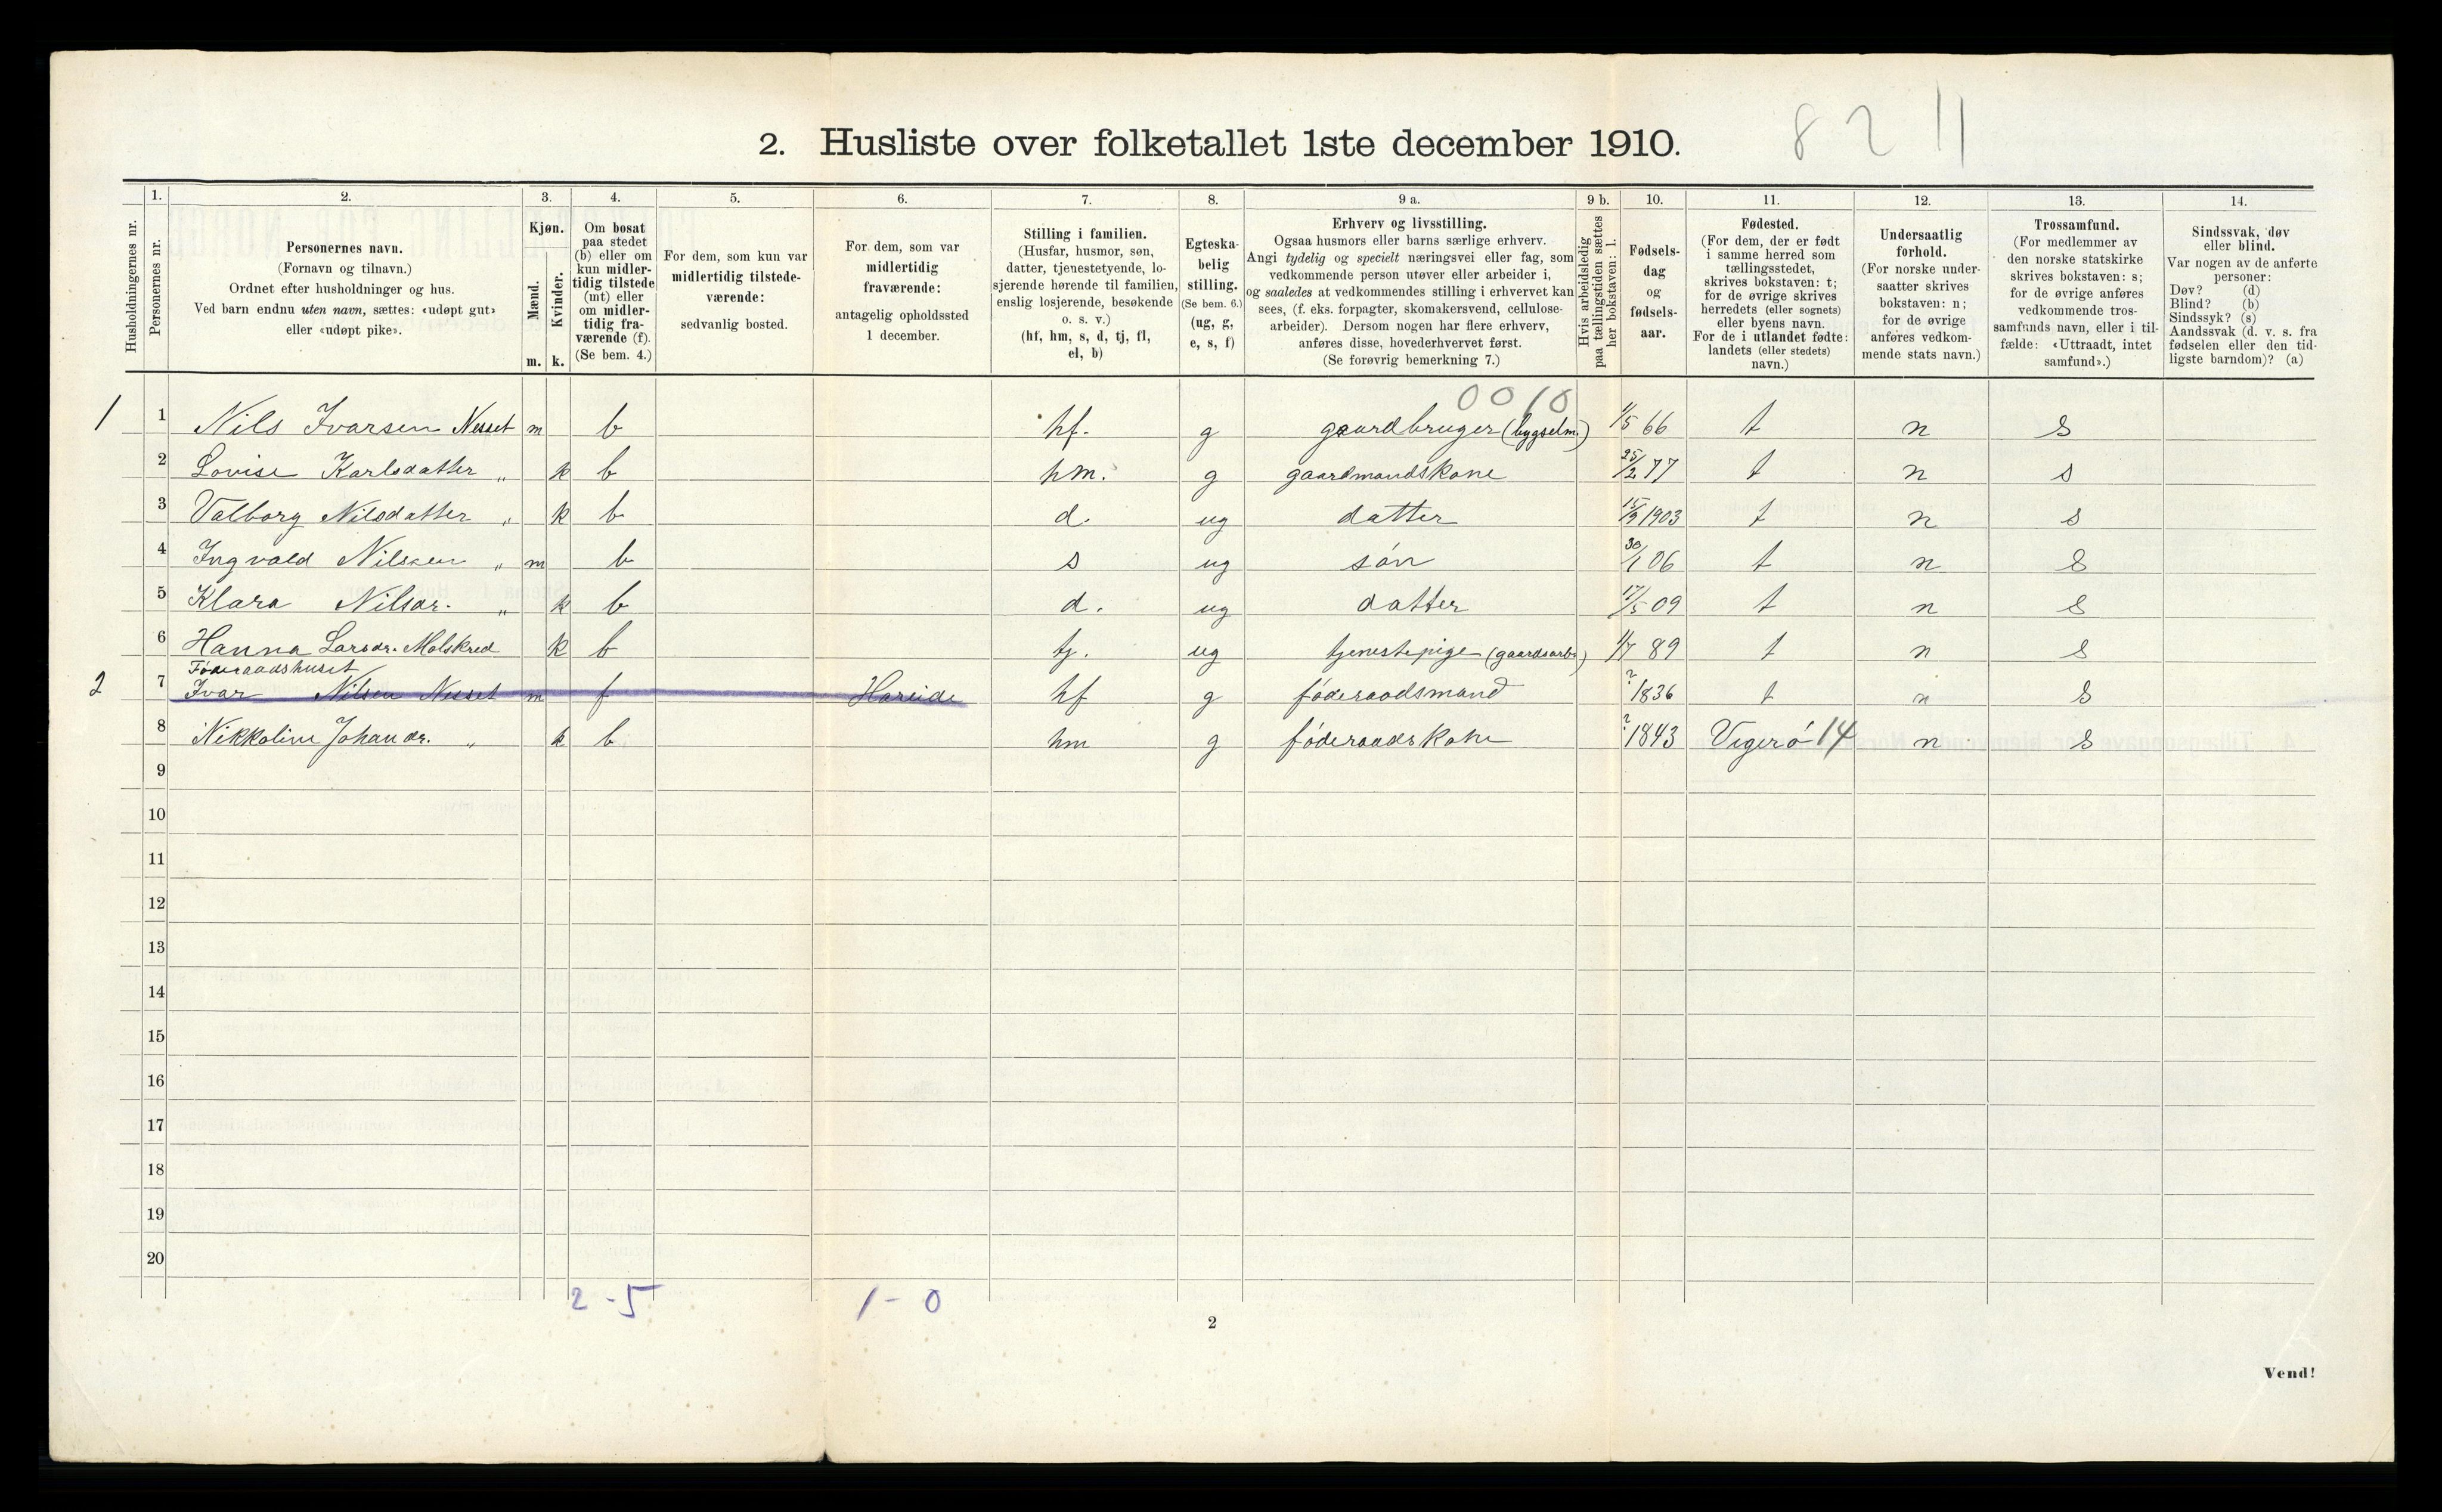 8 2 11
2. Husliste over folketallet 1ste december 1910.
Husholdningernes nr.
1. Personernes nr.
2. Personernes navn. (Fornavn og tilnavn.) Ordnet efter husholdninger og hus. Ved barn endnu uten navn, sættes: «udøpt gut» eller «udøpt pike».
3. Kjøn. Mænd. m. Kvinder. k.
4. Om bosat paa stedet (b) eller om kun midler-tidig tilstede (mt) eller om midler-tidig fra-værende (f). (Se bem. 4.)
5. For dem, som kun var midlertidig tilstede-værende: sedvanlig bosted.
6. For dem, som var midlertidig fraværende: antagelig opholdssted 1 december.
7. Stilling i familien. (Husfar, husmor, søn, datter, tjenestetyende, lo-sjerende hørende til familien, enslig losjerende, besøkende o. s. v.) (hf, hm, s, d, tj, fl, el, b)
8. Egteska-belig stilling. (Se bem. 6.) (ug, g, e, s, f)
9 a. Erhverv og livsstilling. Ogsaa husmors eller barns særlige erhverv. Angi tydelig og specielt næringsvei eller fag, som vedkommende person utøver eller arbeider i, og saaledes at vedkommendes stilling i erhvervet kan sees, (f. eks. forpagter, skomakersvend, cellulose-arbeider). Dersom nogen har flere erhverv, anføres disse, hovederhvervet først. (Se forøvrig bemerkning 7.)
9 b. Hvis arbeidsledig paa tællingstiden sættes her bokstaven: l.
10. Fødsels-dag og fødsels-aar.
11. Fødested. (For dem, der er født i samme herred som tællingsstedet, skrives bokstaven: t; for de øvrige skrives herredets (eller sognets) eller byens navn. For de i utlandet fødte: landets (eller stedets) navn.)
12. Undersaatlig forhold. (For norske under-saatter skrives bokstaven: n; for de øvrige anføres vedkom-mende stats navn.)
13. Trossamfund. (For medlemmer av den norske statskirke skrives bokstaven: s; for de øvrige anføres vedkommende tros-samfunds navn, eller i til-fælde: «Uttraadt, intet samfund».)
14. Sindssvak, døv eller blind. Var nogen av de anførte personer: Døv? (d) Blind? (b) Sindssyk? (s) Aandssvak (d. v. s. fra fødselen eller den tid-ligste barndom)? (a)
0010
1 1 Nils Ivarsen Nesset m b hf. g gaardbruger (bygselm.) 1/5 66 t n s
2 Lovise Karlsdatter „ k b hm. g gaardmandskone 25/2 77 t n s
3 Valborg Nilsdatter „ k b d. ug datter 15/9 1903 t n s
4 Ingvald Nilssen „ m b s ug søn 30/1 06 t n s
5 Klara Nilsdr. „ k b d. ug datter 17/5 09 t n s
6 Hanna Larsdr. Molskred k b tj. ug tjenestepige (gaardsarb.) 1/7 89 t n s
Føderaadshuset
2 7 Ivar Nilsen Nesset m f Hareide hf g føderaadsmand ? 1836 t n s
8 Nikkoline Johandr. „ k b hm g føderaadskone ? 1843 Vigerø 14 n s
9
10
11
12
13
14
15
16
17
18
19
20
2 - 5 1 - 0
2
Vend!